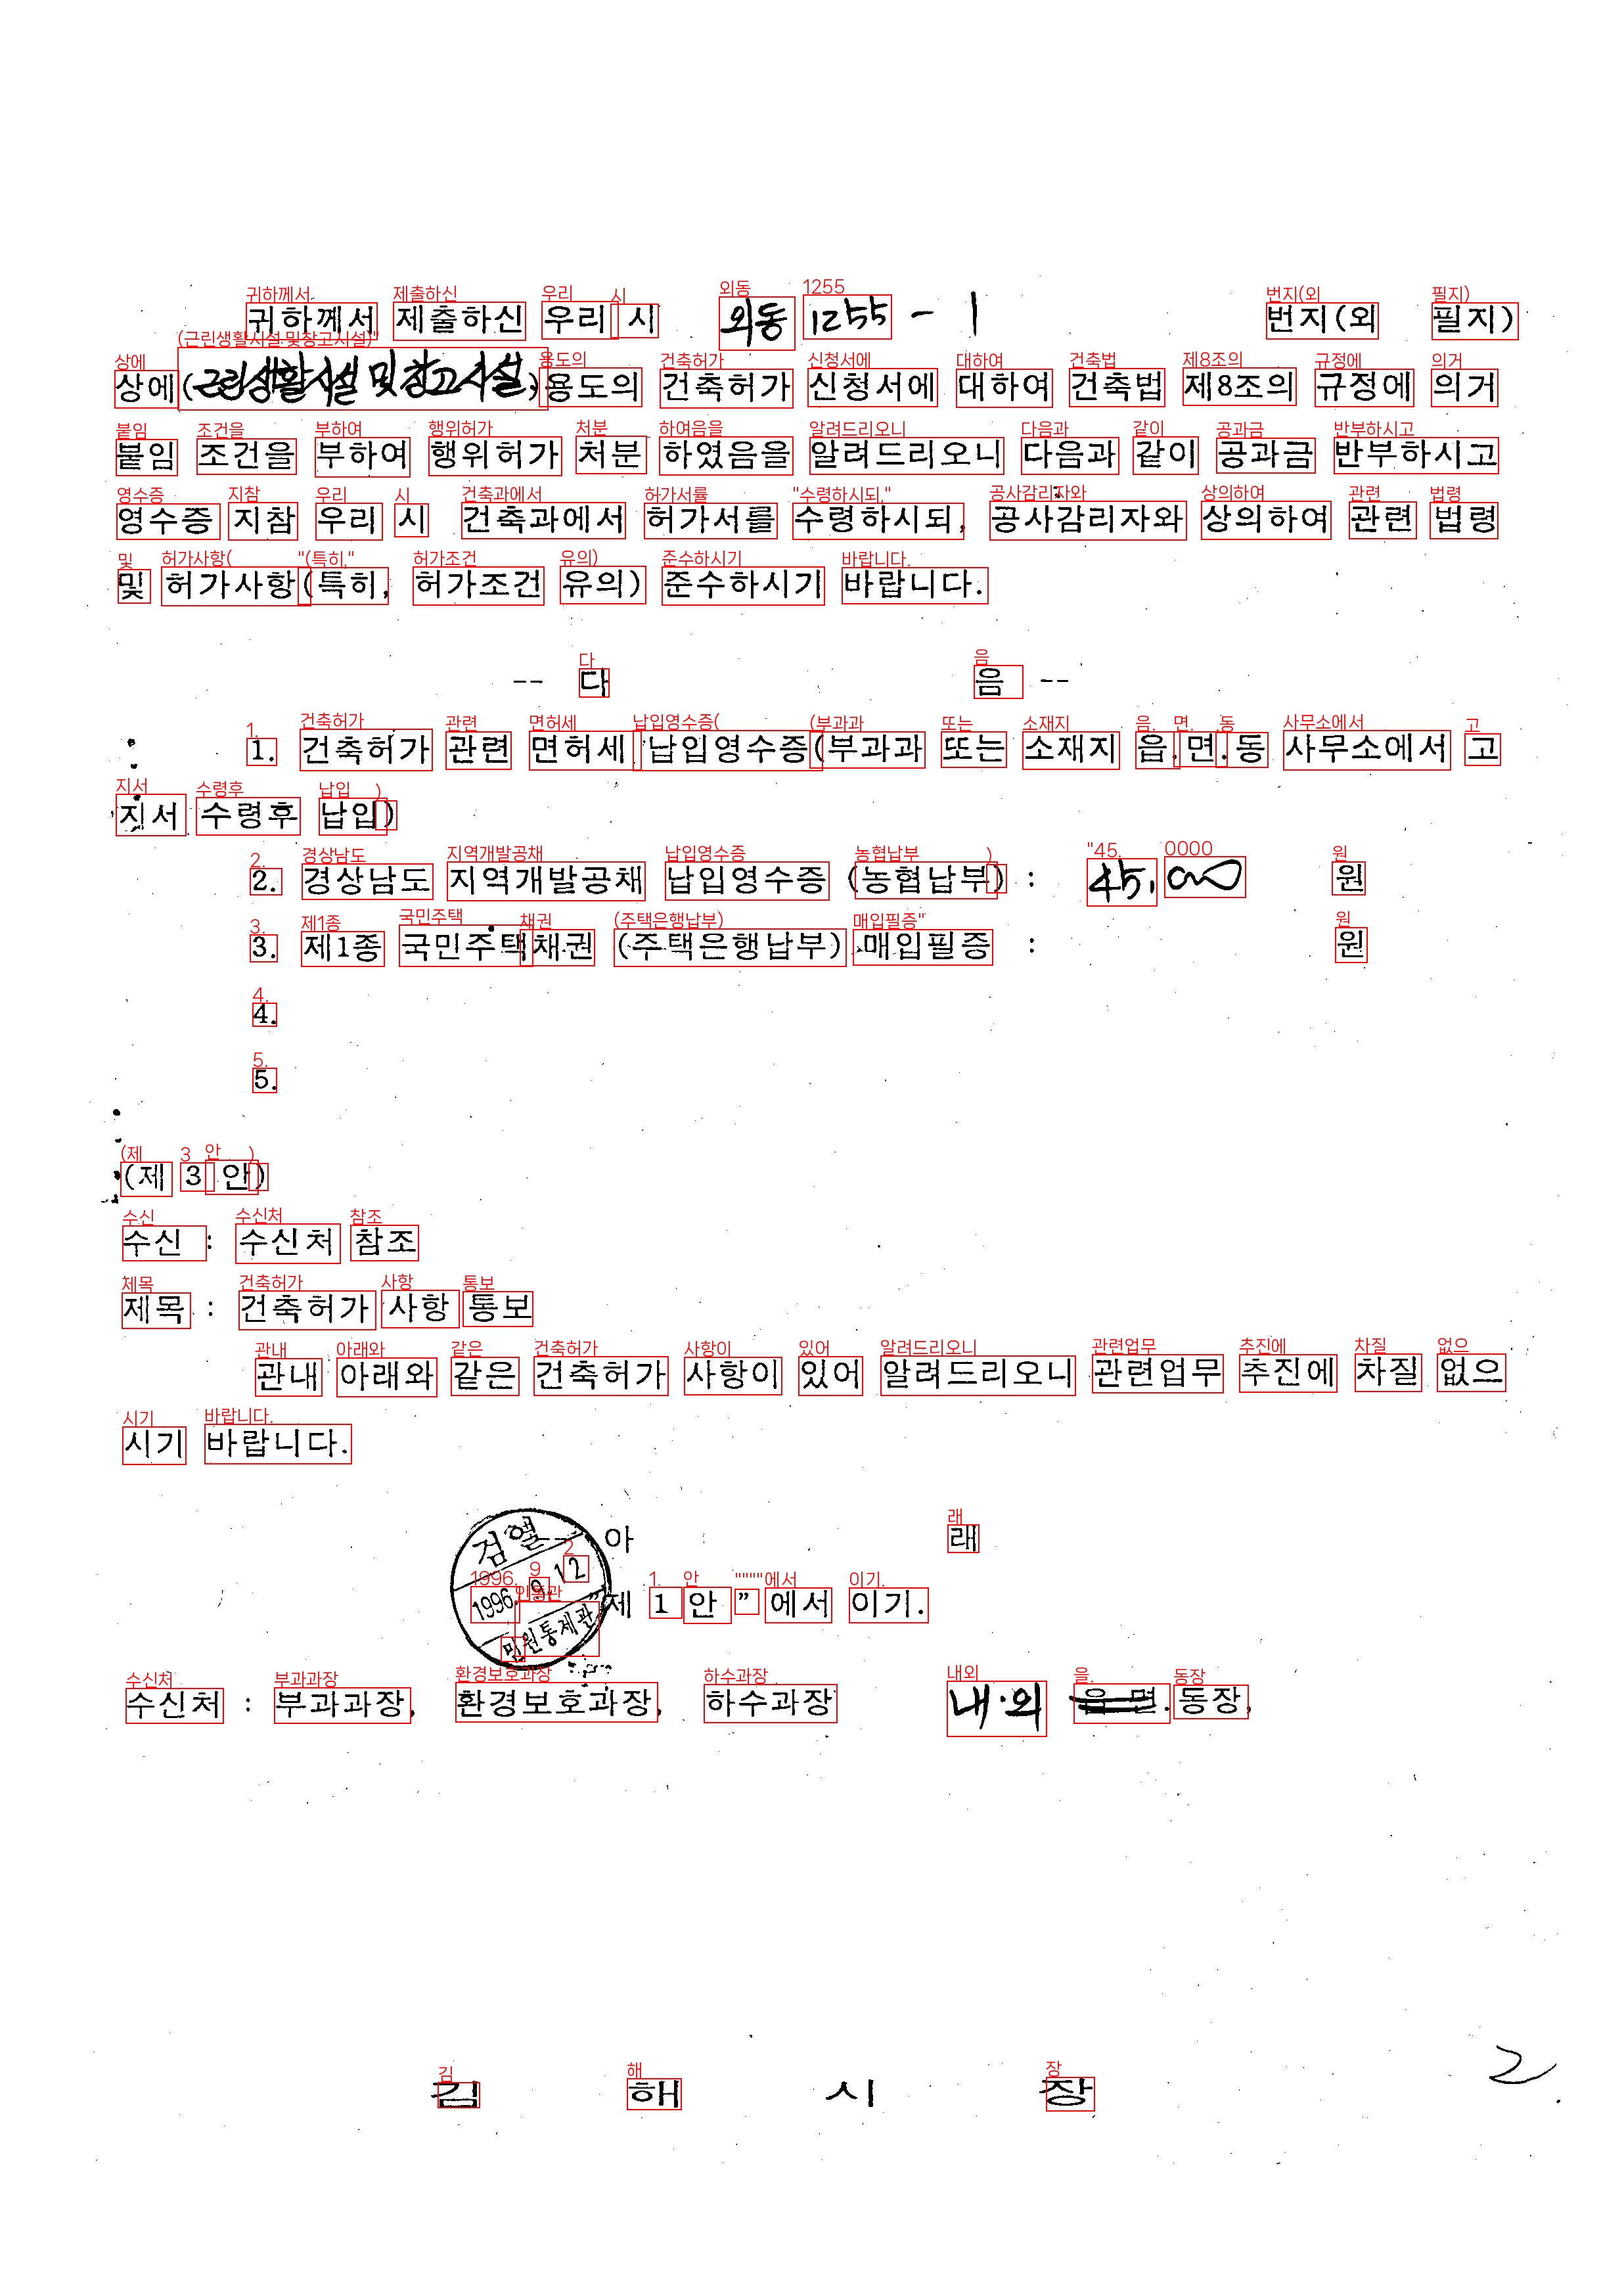 귀하께서 제출하신 우리 시 외동 1255 - 1 번지(외 필지)
상에(근린생활시설 및 창고시설)용도의 건축허가 신청서에 대하여 건축법 제8조의 규정에 의거
붙임 조건을 부하여 행위허가 처분 하였음을 알려드리오니 다음과 같이 공과금 반부하시고
영수증 지참 우리 시 건축과에서 허가서를 수령하시되, 공사감리자와 상의하여 관련 법령
및 허가사항(특히, 허가조건 유의) 준수하시기 바랍니다.
-- 다 음 --
1. 건축허가 관련 면허세 납입영수증(부과과 또는 소재지 읍.면.동 사무소에서 고
지서 수령후 납입)
2. 경상남도 지역개발공채 납입영수증 (농협납부) : 45,000 원
3. 제1종 국민주택채권 (주택은행납부) 매입필증 : 원
4.
5.
(제 3 안)
수신 : 수신처 참조
제목 : 건축허가 사항 통보
관내 아래와 같은 건축허가 사항이 있어 알려드리오니 관련업무 추진에 차질 없으
시기 바랍니다.
아 래
검열
1996. 9. 12
민원통제관
"제 1 안" 에서 이기.
수신처 : 부과과장, 환경보호과장, 하수과장 내·외 읍 면.동장,
김 해 시 장
2